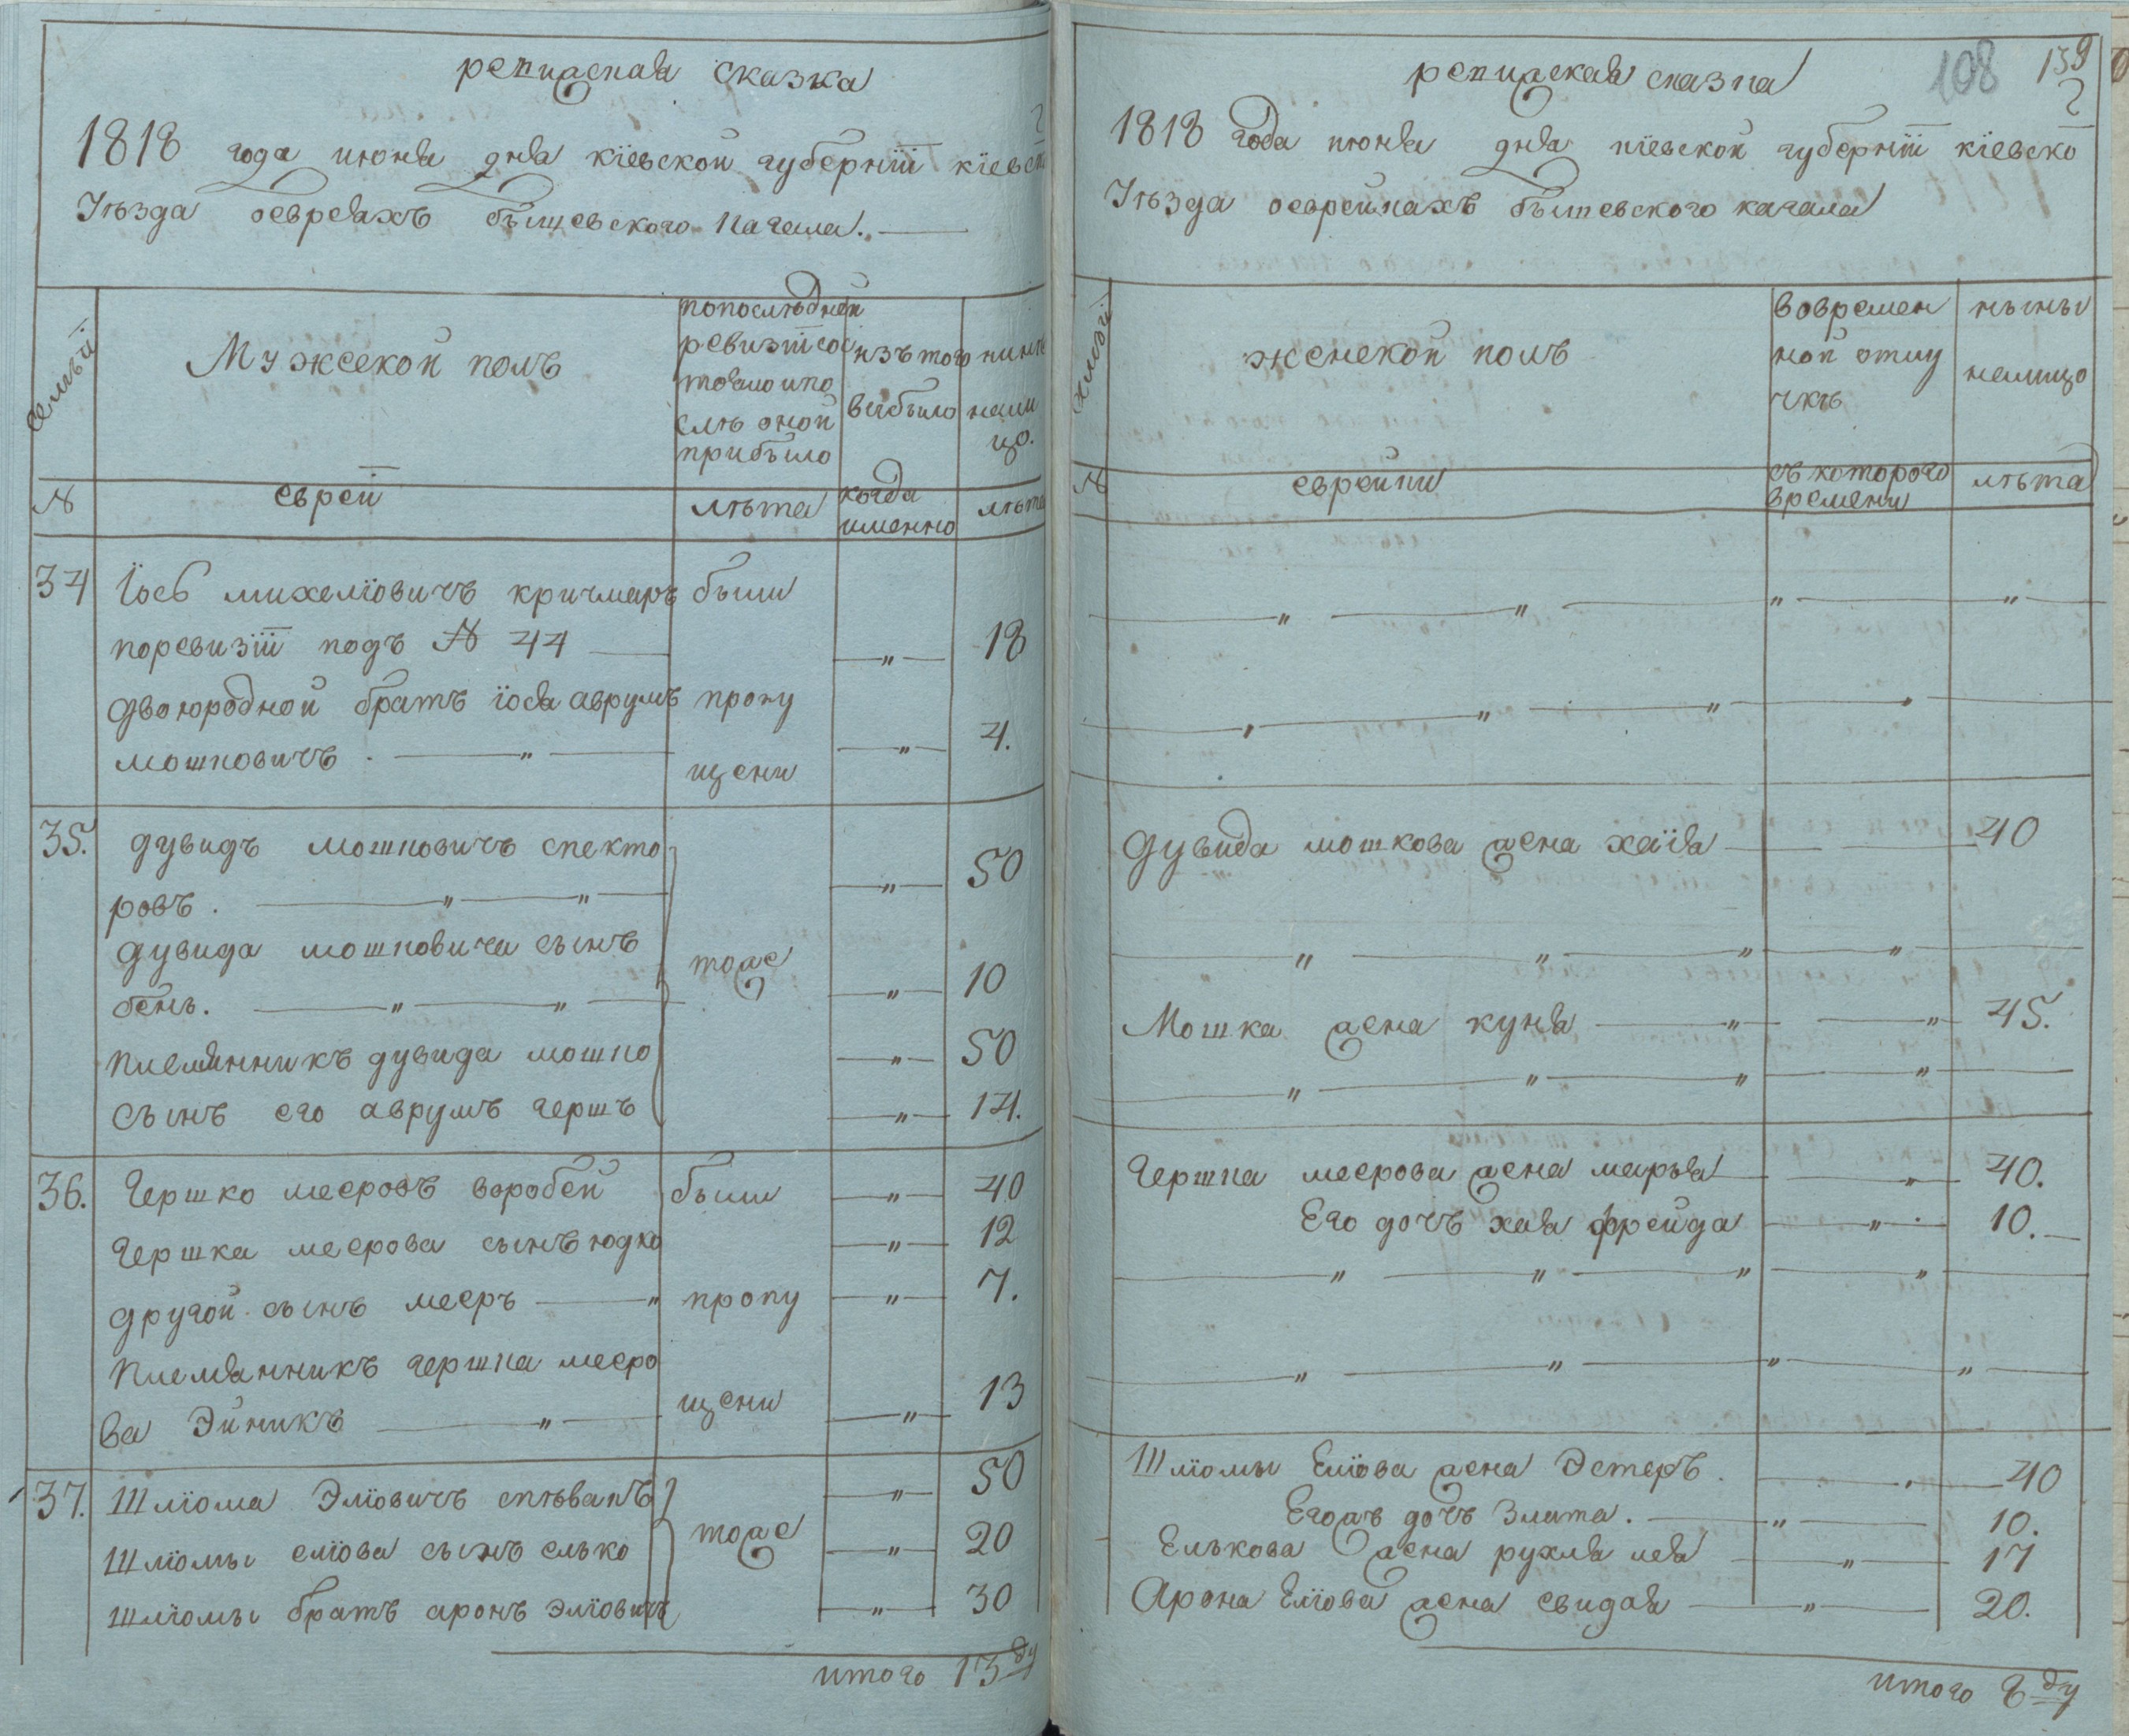 ревиская сказка
1818 года июня дня кіевской губерніи кіевск
Уѣзда оевреяхъ бышевского кагала.
семьи
Мужеской полъ
попослѣдней
ревизіи сос
тояло и по
слѣ оной
прибыло
изътого
выбыло
нинѣ
нали
цо.
№
евреи
лѣта
когда
именно
лѣта
34 Іось михеліовичъ кричмаръ были
поревизіи подъ № 44 — „ — 18
двоюродной братъ іося аврумъ пропу
мошковичъ. — „ — щени — „ — 4.
35. дувидъ мошковичъ спекто
ровъ. — „ — „ — „ — 50
дувида мошковича сынъ тоже
бень. — „ — „ — „ — 10
племянникъ дувида мошко — „ — 50
сынъ его аврумъ гершъ — „ — 14.
36. Гершко мееровъ воробей были — „ — 40
Гершка меерова сынъ юдко — „ — 12
другой сынъ мееръ — „ пропу — „ — 7.
племянникъ гершка мееро
ва Эйникъ — „ — щени — „ — 13
37. Шліома Эліовичъ спѣвакъ — „ — 50
Шліомы еліова сынъ елько тоже — „ — 20
шліомы братъ аронъ эліовичъ — „ — 30
итого 13 ду
108 159
2
ревиская сказка
1818 года июня дня кіевской губерніи кіевско
Уѣзда оеврейкахъ бышевского кагала
семьи
женской полъ
вовремен
ной отлу
чкѣ
нынѣ
налицо
№
еврейки
съ которого
времени
лѣта
— „ — „ — „ — „ —
— „ — „ — „ — „ —
дувида мошкова жена хаія — 40
— „ — „ — „ — „ —
Мошка жена куня — „ — „ — 45.
— „ — „ — „ — „ —
Гершка меерова жена марья — „ — 40.
Его дочъ хая фрейда — „ — 10. —
— „ — „ — „ — „ —
— „ — „ — „ — „ —
Шліомы Еліова жена Эстеръ. — „ — 40
Егожъ дочъ Злата. — „ — 10.
Елькова жена рухля лея — „ — 17
Арона Еліова жена свидая — „ — 20.
итого 8 ду